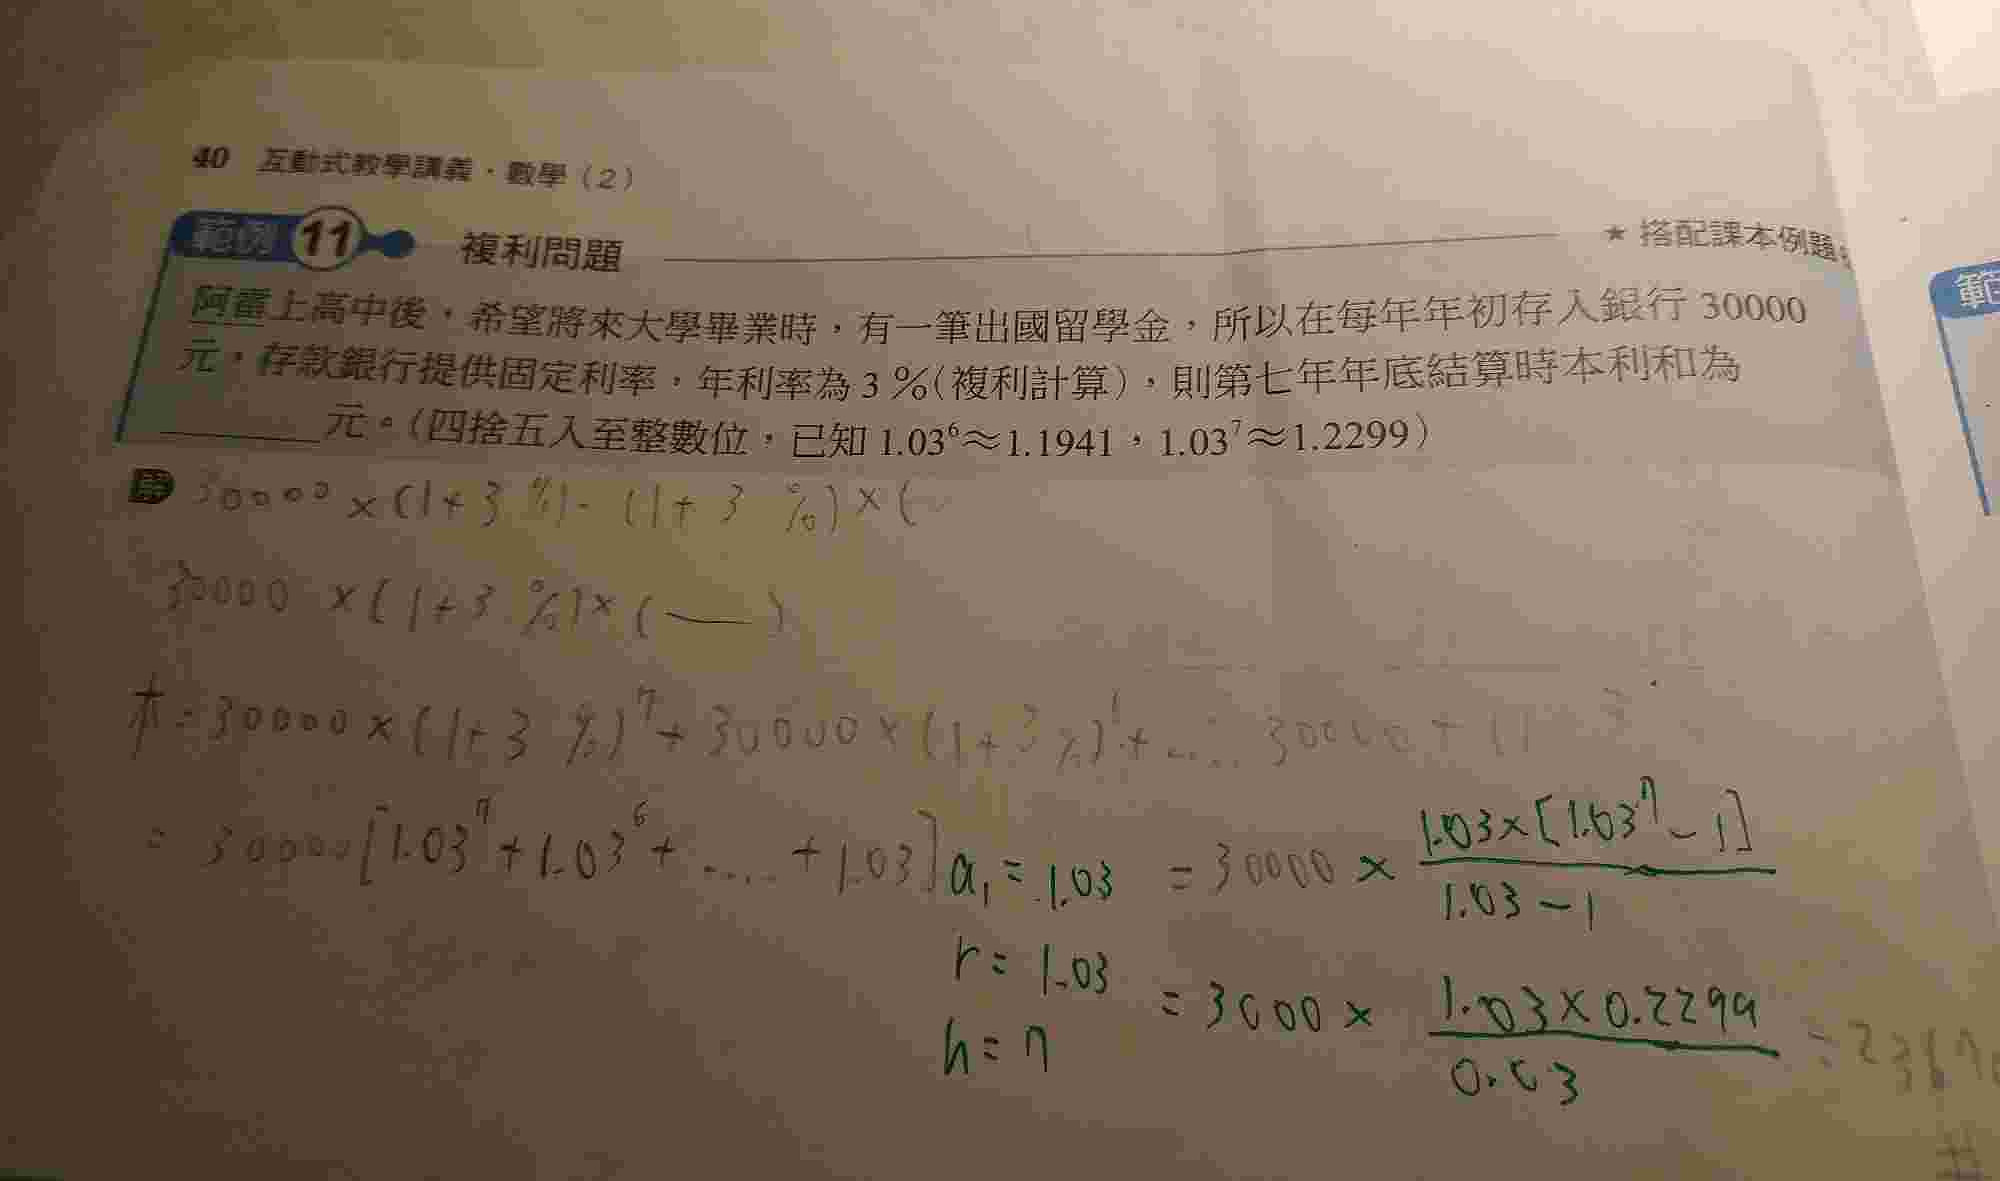 40 互動式教學講義・數學(2)
範例 11 複利問題 ★ 搭配課本例題
阿當上高中後，希望將來大學畢業時，有一筆出國留學金，所以在每年年初存入銀行 30000
元，存款銀行提供固定利率，年利率為 3 %(複利計算)，則第七年年底結算時本利和為
______元。(四捨五入至整數位，已知 1.03⁶≈1.1941，1.03⁷≈1.2299)
30000×(1+3%)·(1+3%)×(
30000×(1+3%)×(—)
本=30000×(1+3%)⁷+30000×(1+3%)⁶+.....30000+(1
=30000[1.03⁷+1.03⁶+.....+1.03] a₁=1.03 =30000× 1.03×[1.03⁷-1]
1.03-1
r=1.03
n=7
=3000× 1.03×0.2299
0.03
=2367